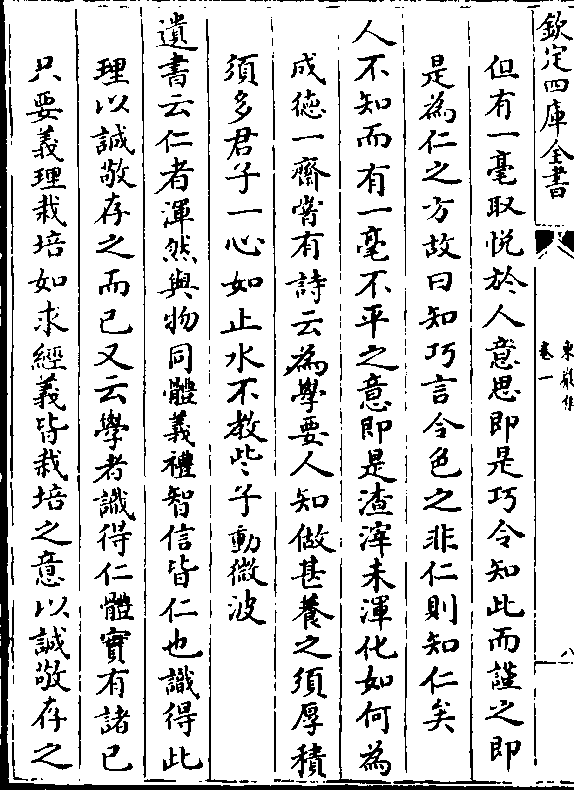 欽定四庫全書
東巖集
卷一
八
但有一毫取悅於人意思即是巧令知此而謹之即
是為仁之方故曰知巧言令色之非仁則知仁矣
人不知而有一毫不平之意即是渣滓未渾化如何為
成德一齋嘗有詩云為學要人知做甚養之須厚積
須多君子一心如止水不教些子動微波
遺書云仁者渾然與物同體義禮智信皆仁也識得此
理以誠敬存之而已又云學者識得仁體實有諸已
只要義理栽培如求經義皆栽培之意以誠敬存之